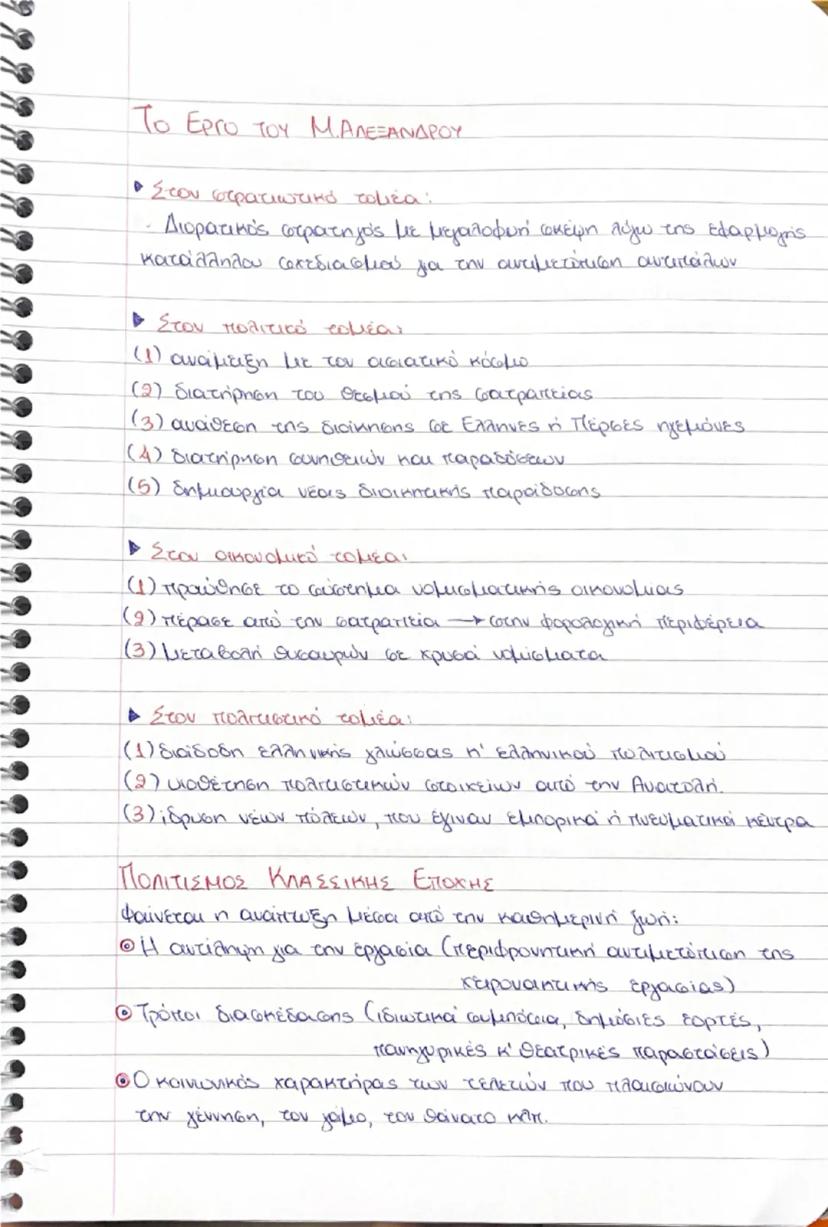 Το Εργο του Μ.Αλεξανδρου
▸ Στον στρατιωτικό τομέα:
- Διορατικός στρατηγός με μεγαλοφυή σκέψη λόγω της εφαρμογής
κατάλληλου σχεδιασμού για την αντιμετώπιση αντιπάλων
▸ Στον πολιτικό τομέα:
(1) ανάμειξη με τον ασιατικό κόσμο
(2) διατήρηση του θεσμού της σατραπείας
(3) ανάθεση της διοίκησης σε Έλληνες ή Πέρσες ηγεμόνες
(4) διατήρηση συνηθειών και παραδόσεων
(5) δημιουργία νέας διοικητικής παράδοσης
▸ Στον οικονομικό τομέα:
(1) προώθησε το σύστημα νομισματικής οικονομίας
(2) πέρασε από την σατραπεία → στην φορολογική περιφέρεια
(3) μεταβολή θησαυρών σε χρυσά νομίσματα
▸ Στον πολιτιστικό τομέα:
(1) διάδοση ελληνικής γλώσσας κ' ελληνικού πολιτισμού
(2) υιοθέτηση πολιτιστικών στοιχείων από την Ανατολή.
(3) ίδρυση νέων πόλεων, που έγιναν εμπορικά ή πνευματικά κέντρα
Πολιτισμος Κλασσικης Εποχης
Φαίνεται η ανάπτυξη μέσα από την καθημερινή ζωή:
◉ Η αντίληψη για την εργασία (περιφρονητική αντιμετώπιση της
χειρονακτικής εργασίας)
◉ Τρόποι διασκέδασης (ιδιωτικά συμπόσια, δημόσιες εορτές,
πανηγυρικές κ' θεατρικές παραστάσεις)
◉ Ο κοινωνικός χαρακτήρας των τελετών που πλαισιώνουν
την γέννηση, τον γάμο, τον θάνατο κλπ.